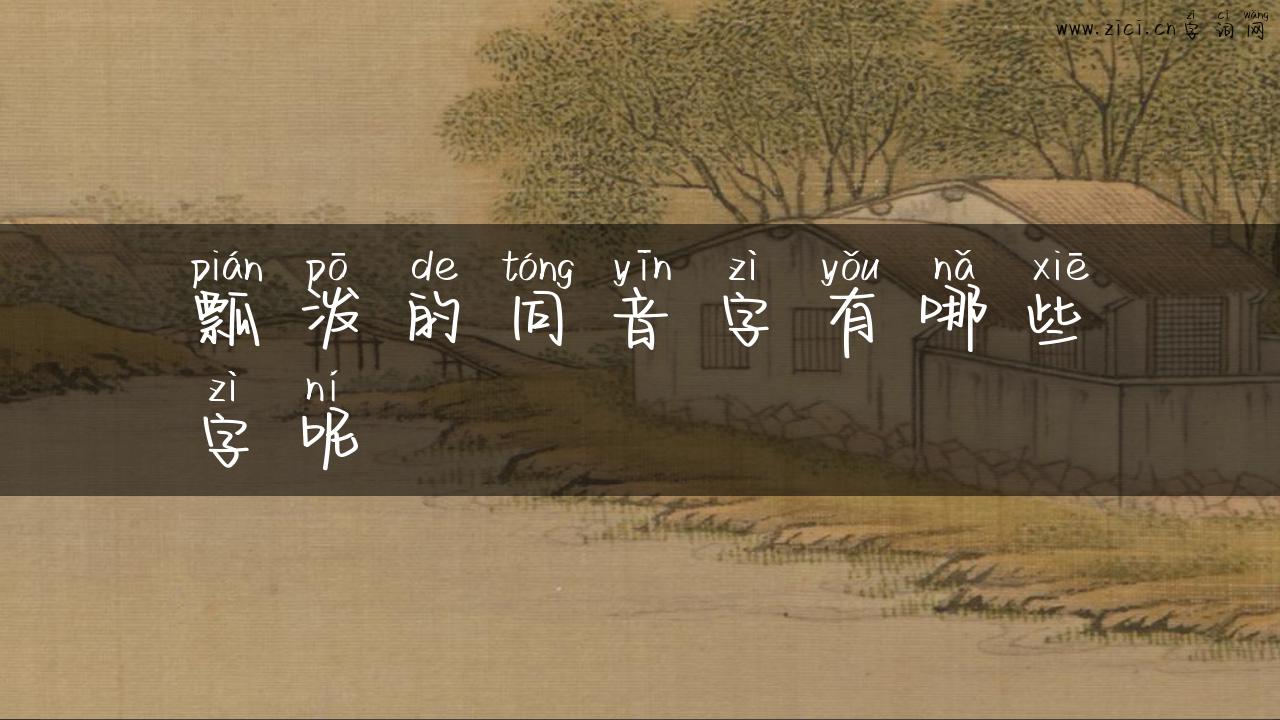 zì cí wǎng
www.zici.cn字词网
pián pō de tóng yīn zì yǒu nǎ xiē
瓢泼的同音字有哪些
zì ní
字呢